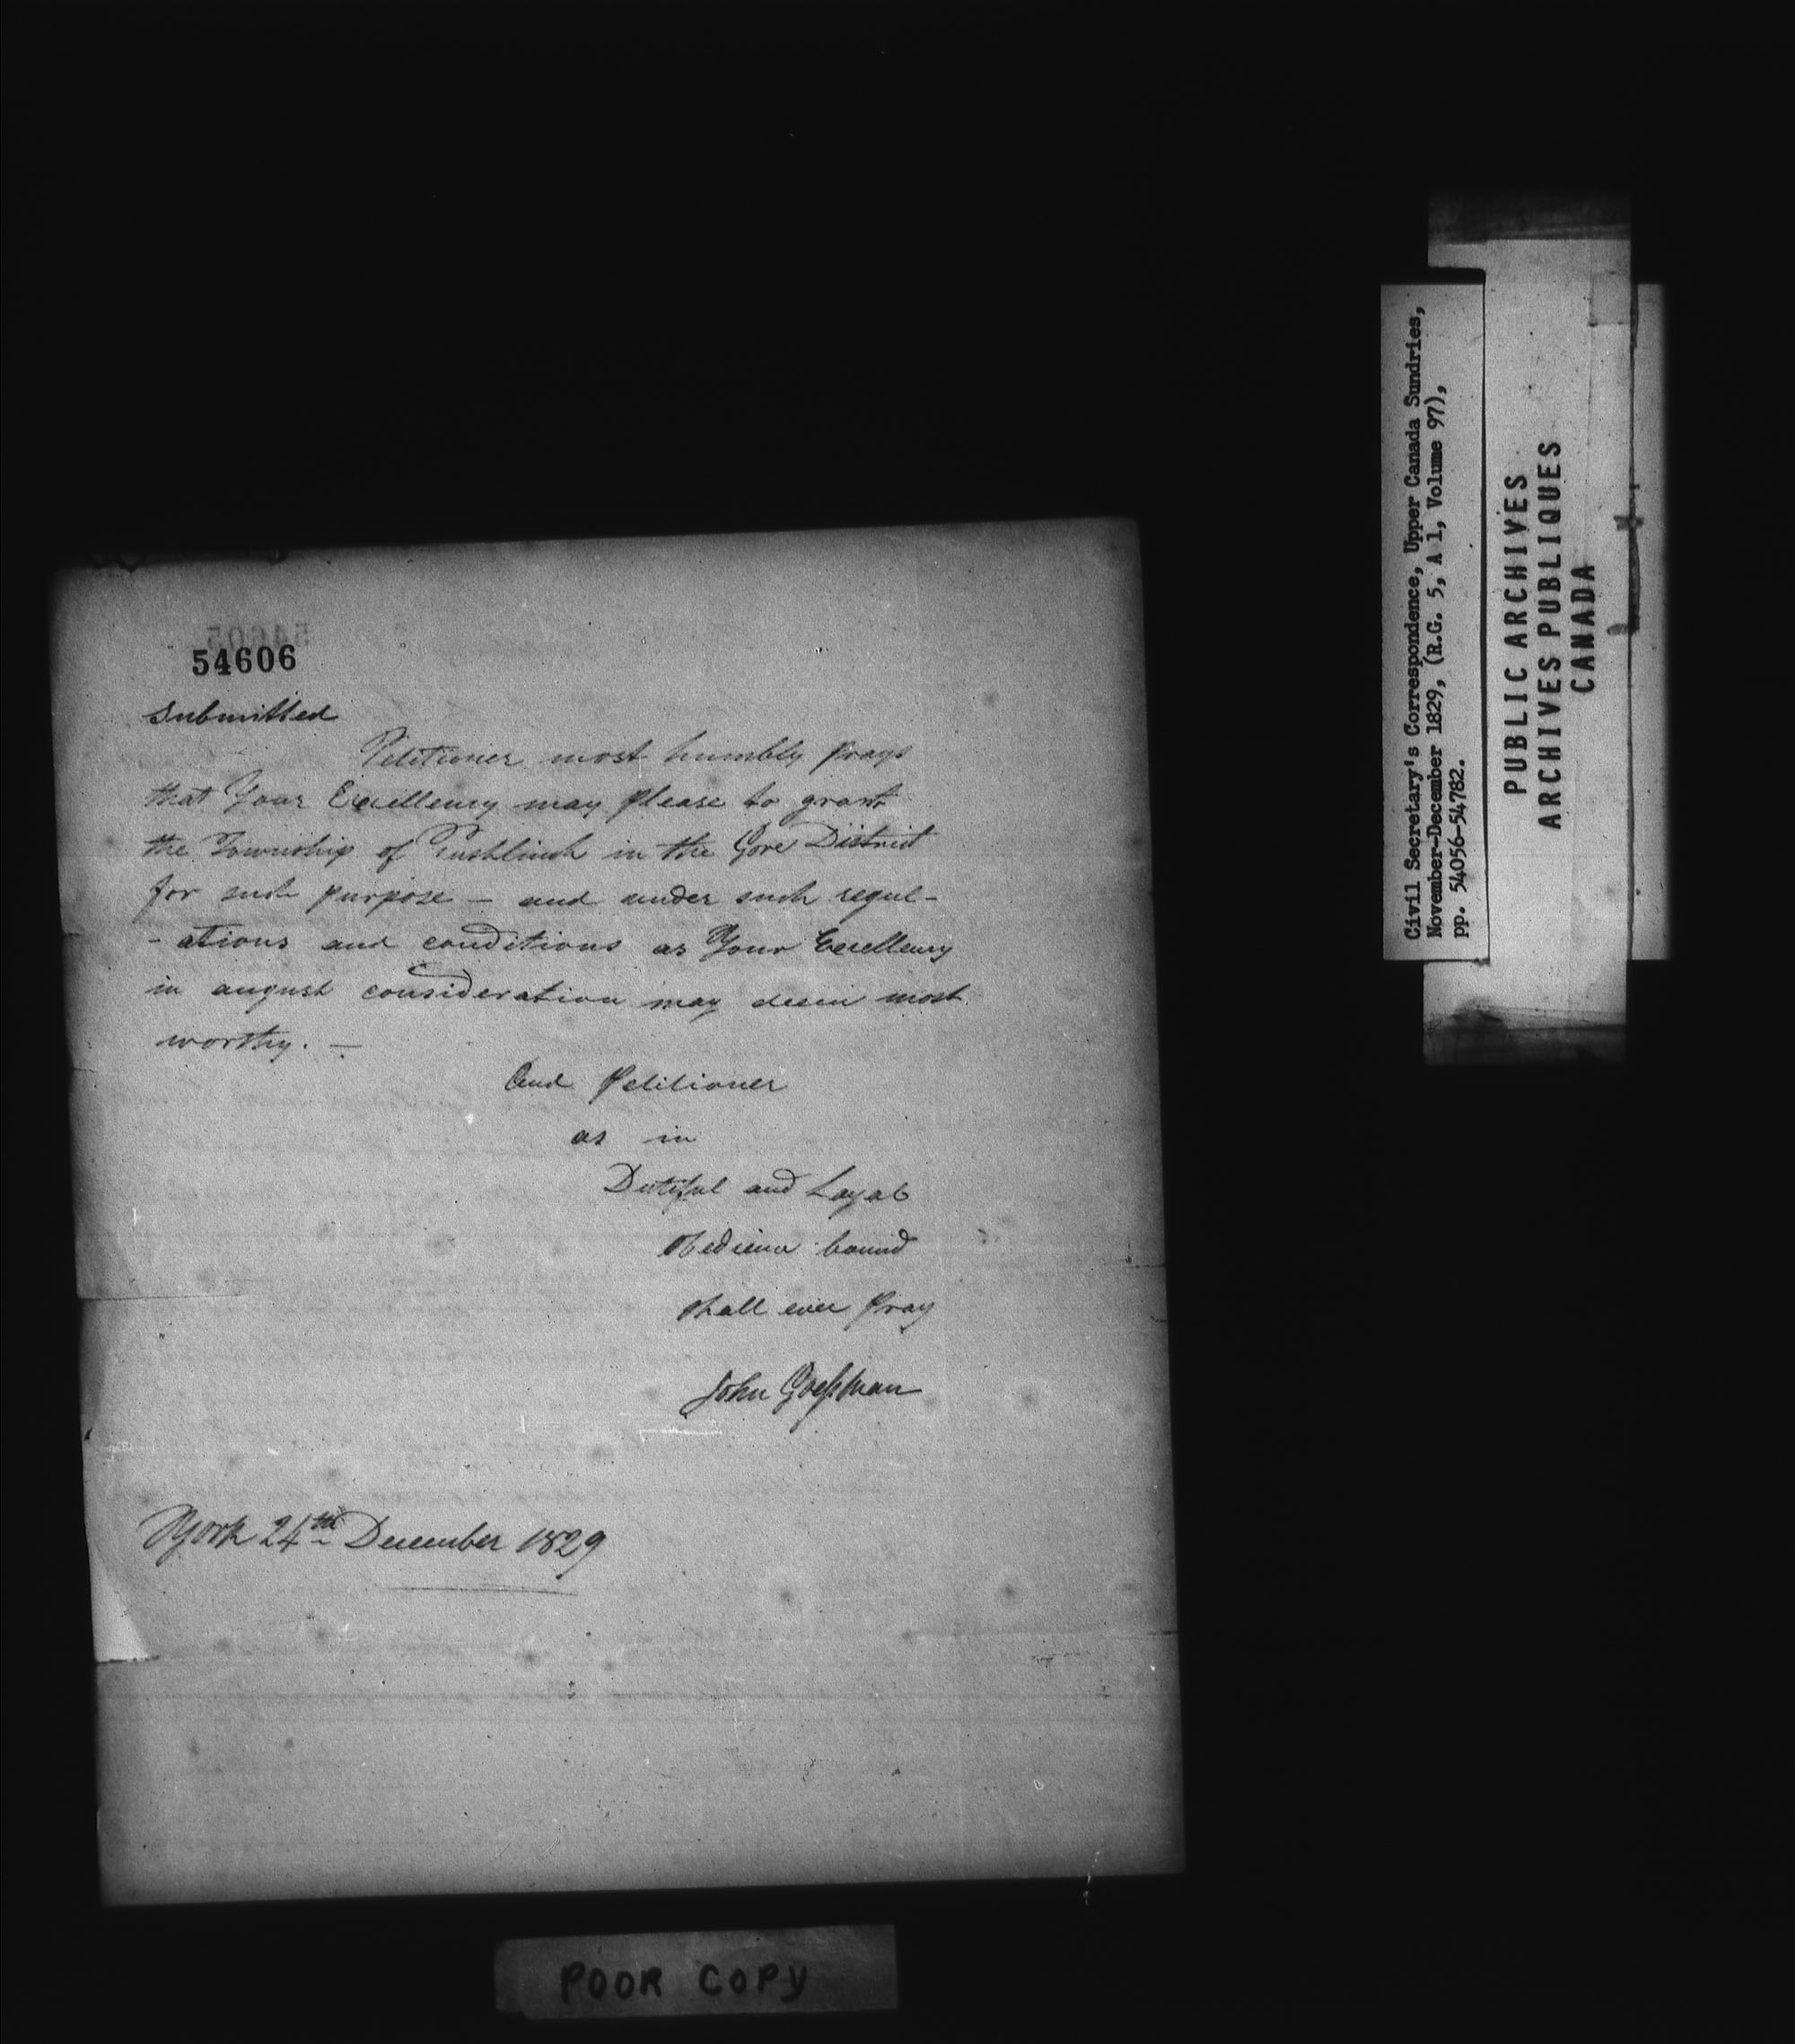 54605
54606
Submitted
Petitioner most humbly prays
that Your Excellency may please to grant
the Township of Pushlinch in the Gore District
for such purpose – and under such regul-
- ations and conditions as Your Excellency
in august consideration may deem most
worthy. —
And Petitioner
as in
Dutiful and Loyal
Obedience bound
shall ever Pray
John Goessman
York 24th December 1829
POOR COPY
Civil Secretary's Correspondence, Upper Canada Sundries,
November-December 1829, (R.G. 5, A 1, Volume 97),
pp. 54056-54782.
PUBLIC ARCHIVES
ARCHIVES PUBLIQUES
CANADA